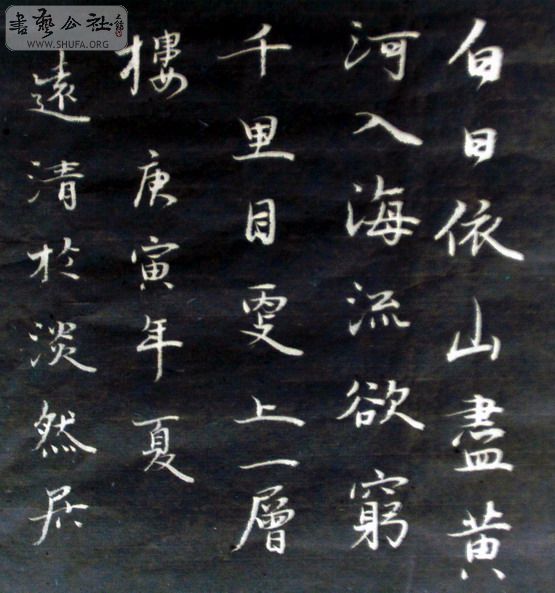 書藝公社
WWW.SHUFA.ORG
白日依山盡黄
河入海流欲窮
千里目更上一層
樓 庚寅年夏
遠清於淡然居